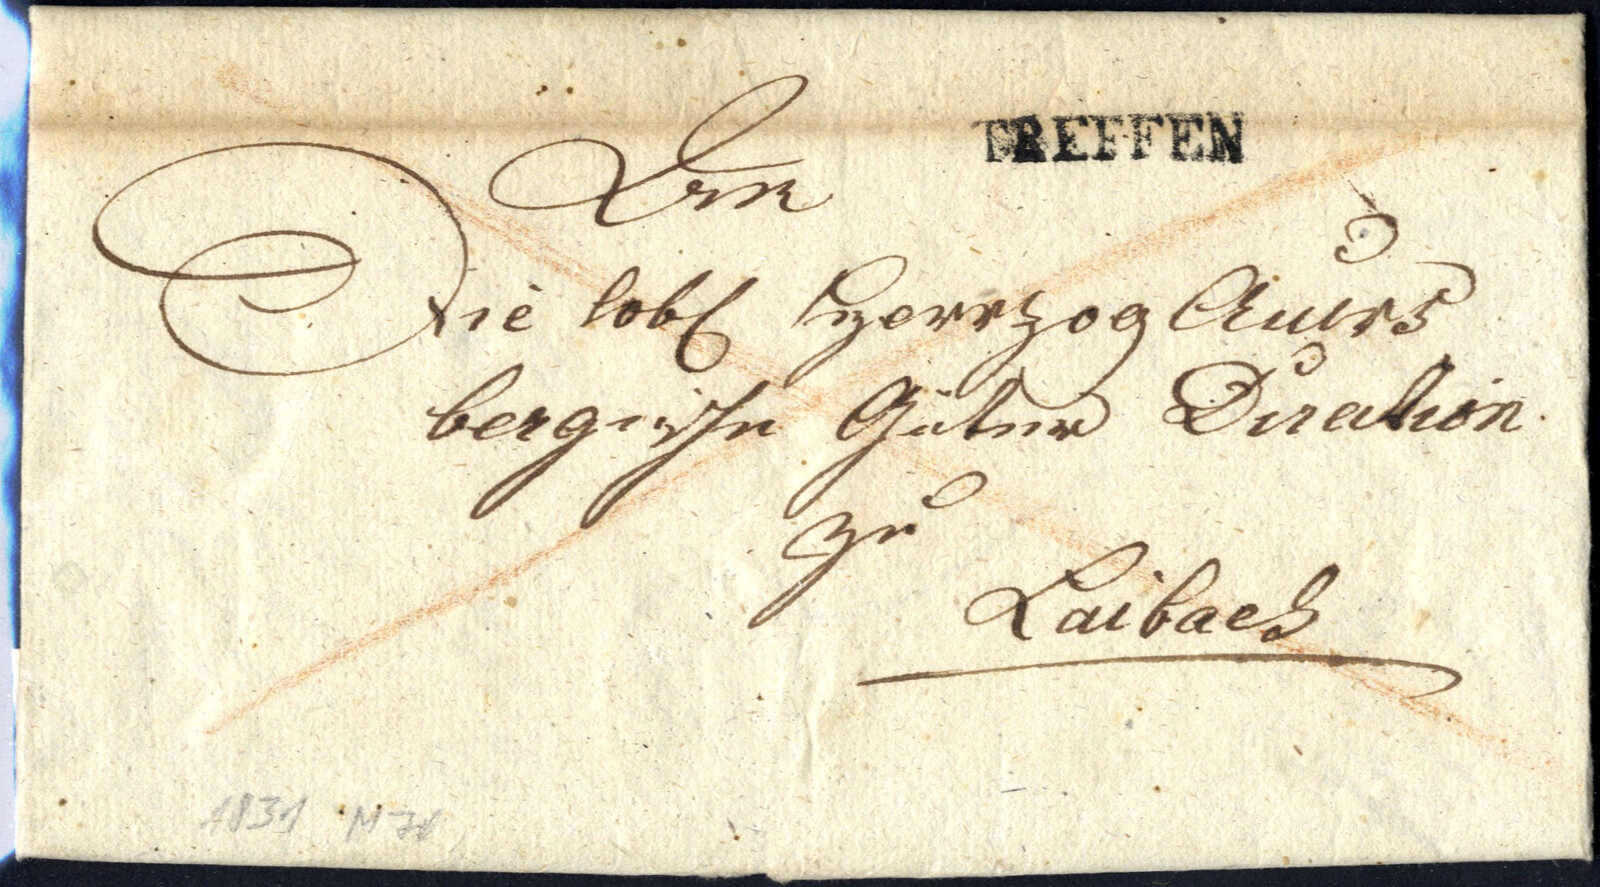 TREFFEN
An
Die lobl Herrzog Auers
bergische Güter Direction
zu
Laibach
1831